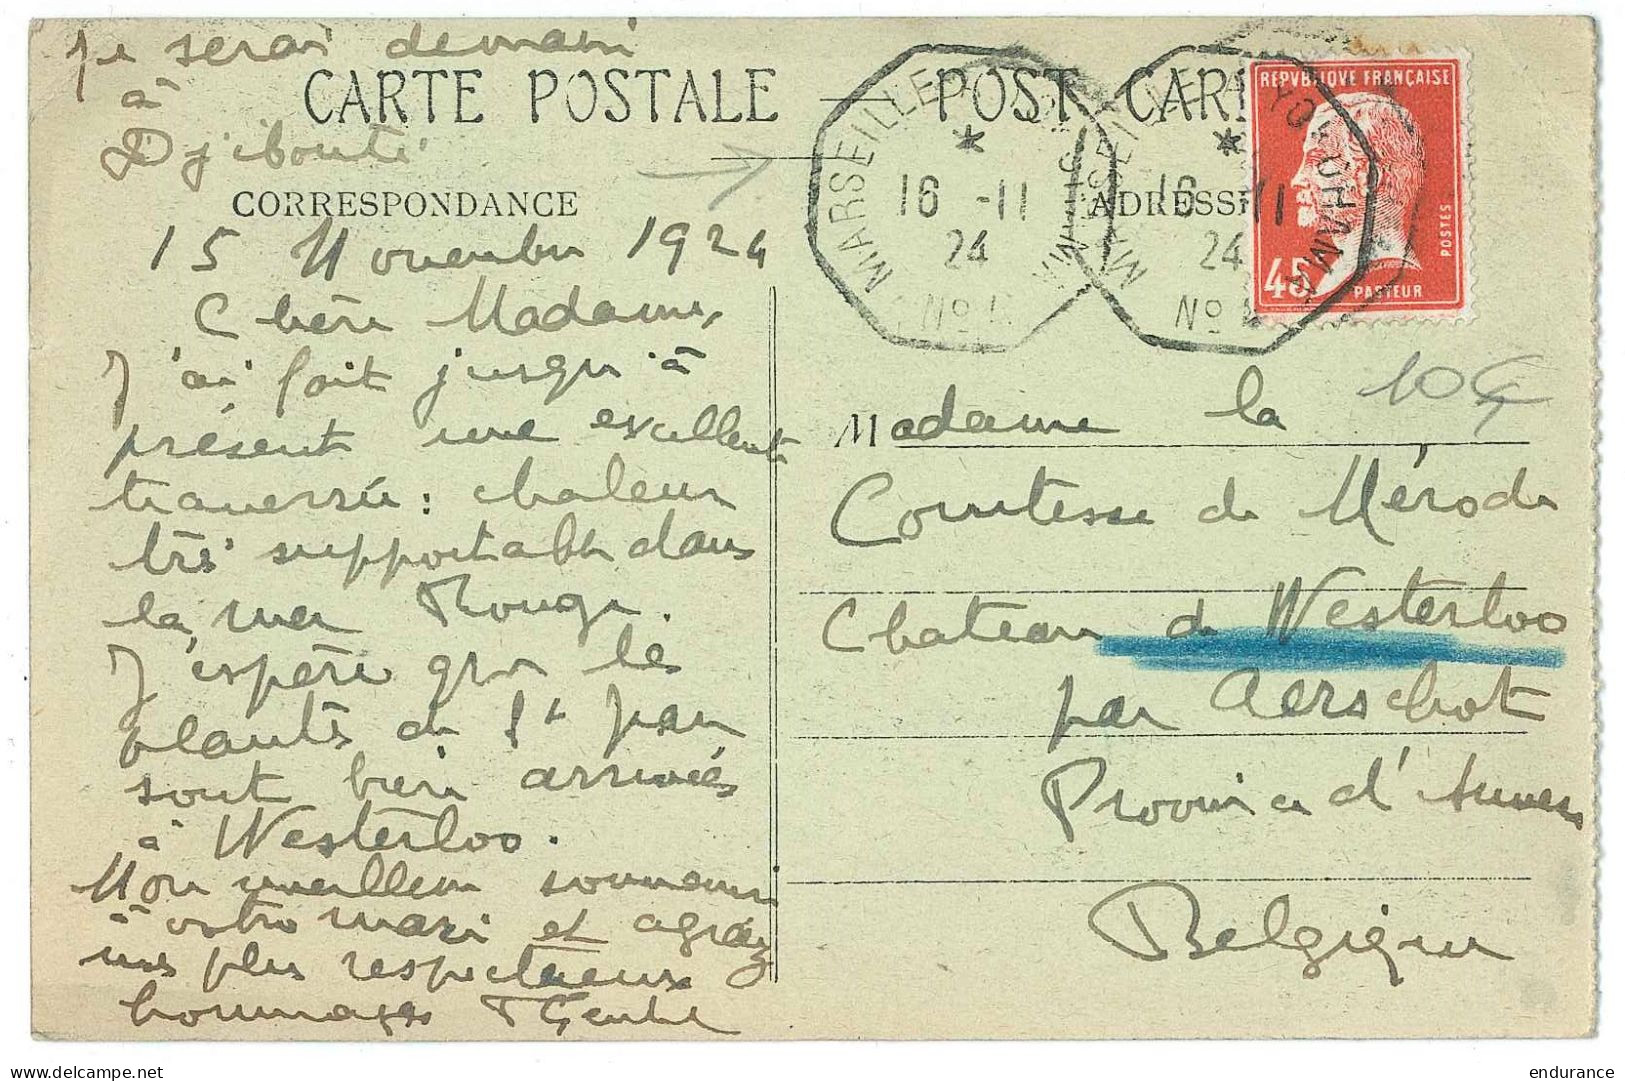 Je serai demain
à
Djibouti
CARTE POSTALE — POST CARD
CORRESPONDANCE
ADRESSE
MARSEILLE A YOKOHAMA
16 -11
24
No
MARSEILLE A YOKOHAMA
16 -11
24
No
REPVBLIQVE FRANÇAISE
POSTES
45
PASTEUR
10€
15 Novembre 1924
Chère Madame,
J'ai fait jusqu'à
présent une excellente
traversée : chaleur
très supportable dans
la mer Rouge.
J'espère que les
plantes du St Jean
sont bien arrivées
à Westerloo.
Mon meilleur souvenir
à votre mari et agréez
mes plus respectueux
hommages
Madame la
Comtesse de Mérode
Chateau de Westerloo
par Aerschot
Province d'Anvers
Belgique
endurance